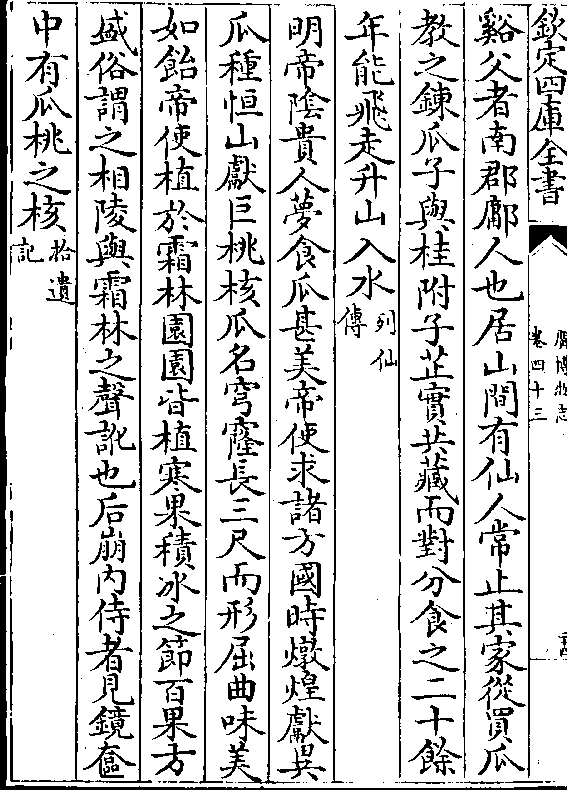 欽定四庫全書
廣博物志
卷四十三
谿父者南郡鄘人也居山間有仙人常止其家從買瓜
教之鍊瓜子與桂附子芷實共藏而對分食之二十餘
年能飛走升山入水列仙傳
明帝陰貴人夢食瓜甚美帝使求諸方國時燉煌獻異
瓜種恒山獻巨桃核瓜名穹窿長三尺而形屈曲味美
如飴帝使植於霜林園園皆植寒果積冰之節百果方
盛俗謂之相陵與霜林之聲訛也后崩內侍者見鏡奩
中有瓜桃之核拾遺記